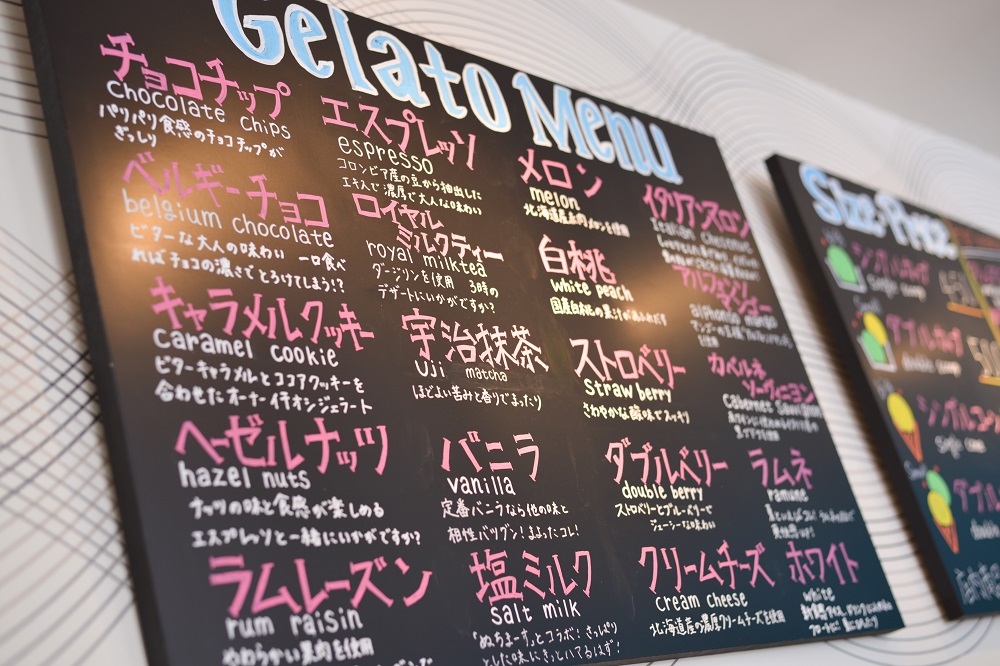 Gelato Menu
チョコチップ
chocolate chips
パリパリ食感のチョコチップが
ぎっしり
ベルギーチョコ
belgium chocolate
ビターな大人の味わい 一口食べ
ればチョコの濃さでとろけてしまう!?
キャラメルクッキー
caramel cookie
ビターキャラメルとココアクッキーを
合わせたオーナー イチオシジェラート
ヘーゼルナッツ
hazel nuts
ナッツの味と食感が楽しめる
エスプレッソと一緒にいかがですか?
ラムレーズン
rum raisin
やわらかい果肉を使用
エスプレッソ
espresso
コロンビア産の豆から抽出した
エキスで濃厚で大人な味わい
ロイヤル
ミルクティー
royal milktea
ダージリンを使用 3時の
デザートにいかがですか?
宇治抹茶
Uji matcha
ほどよい苦みと香りでまったり
バニラ
vanilla
定番バニラなら他の味と
相性バツグン!まよったコレ!
塩ミルク
salt milk
"ぬちまーす"とコラボ!さっぱり
とした味にきっとハてるはず!
メロン
melon
北海道産赤肉メロンを使用
白桃
white peach
国産白桃の果汁があふれだす
ストロベリー
Straw berry
さわやかな酸味でスッキリ
ダブルベリー
double berry
ストロベリーとブルーベリーで
ジューシーな味わい
クリームチーズ
cream cheese
北海道産の濃厚クリームチーズを使用
イタリアンマロン
Italian chestnut
アルフォンソ
マンゴー
alphonso mango
カベルネ
ソーヴィニヨン
cabernet sauvignon
ラムネ
ramune
ホワイト
white
Size・Price
シングルカップ
Single cup
ダブルカップ
double cup
シングルコーン
Single cone
ダブル